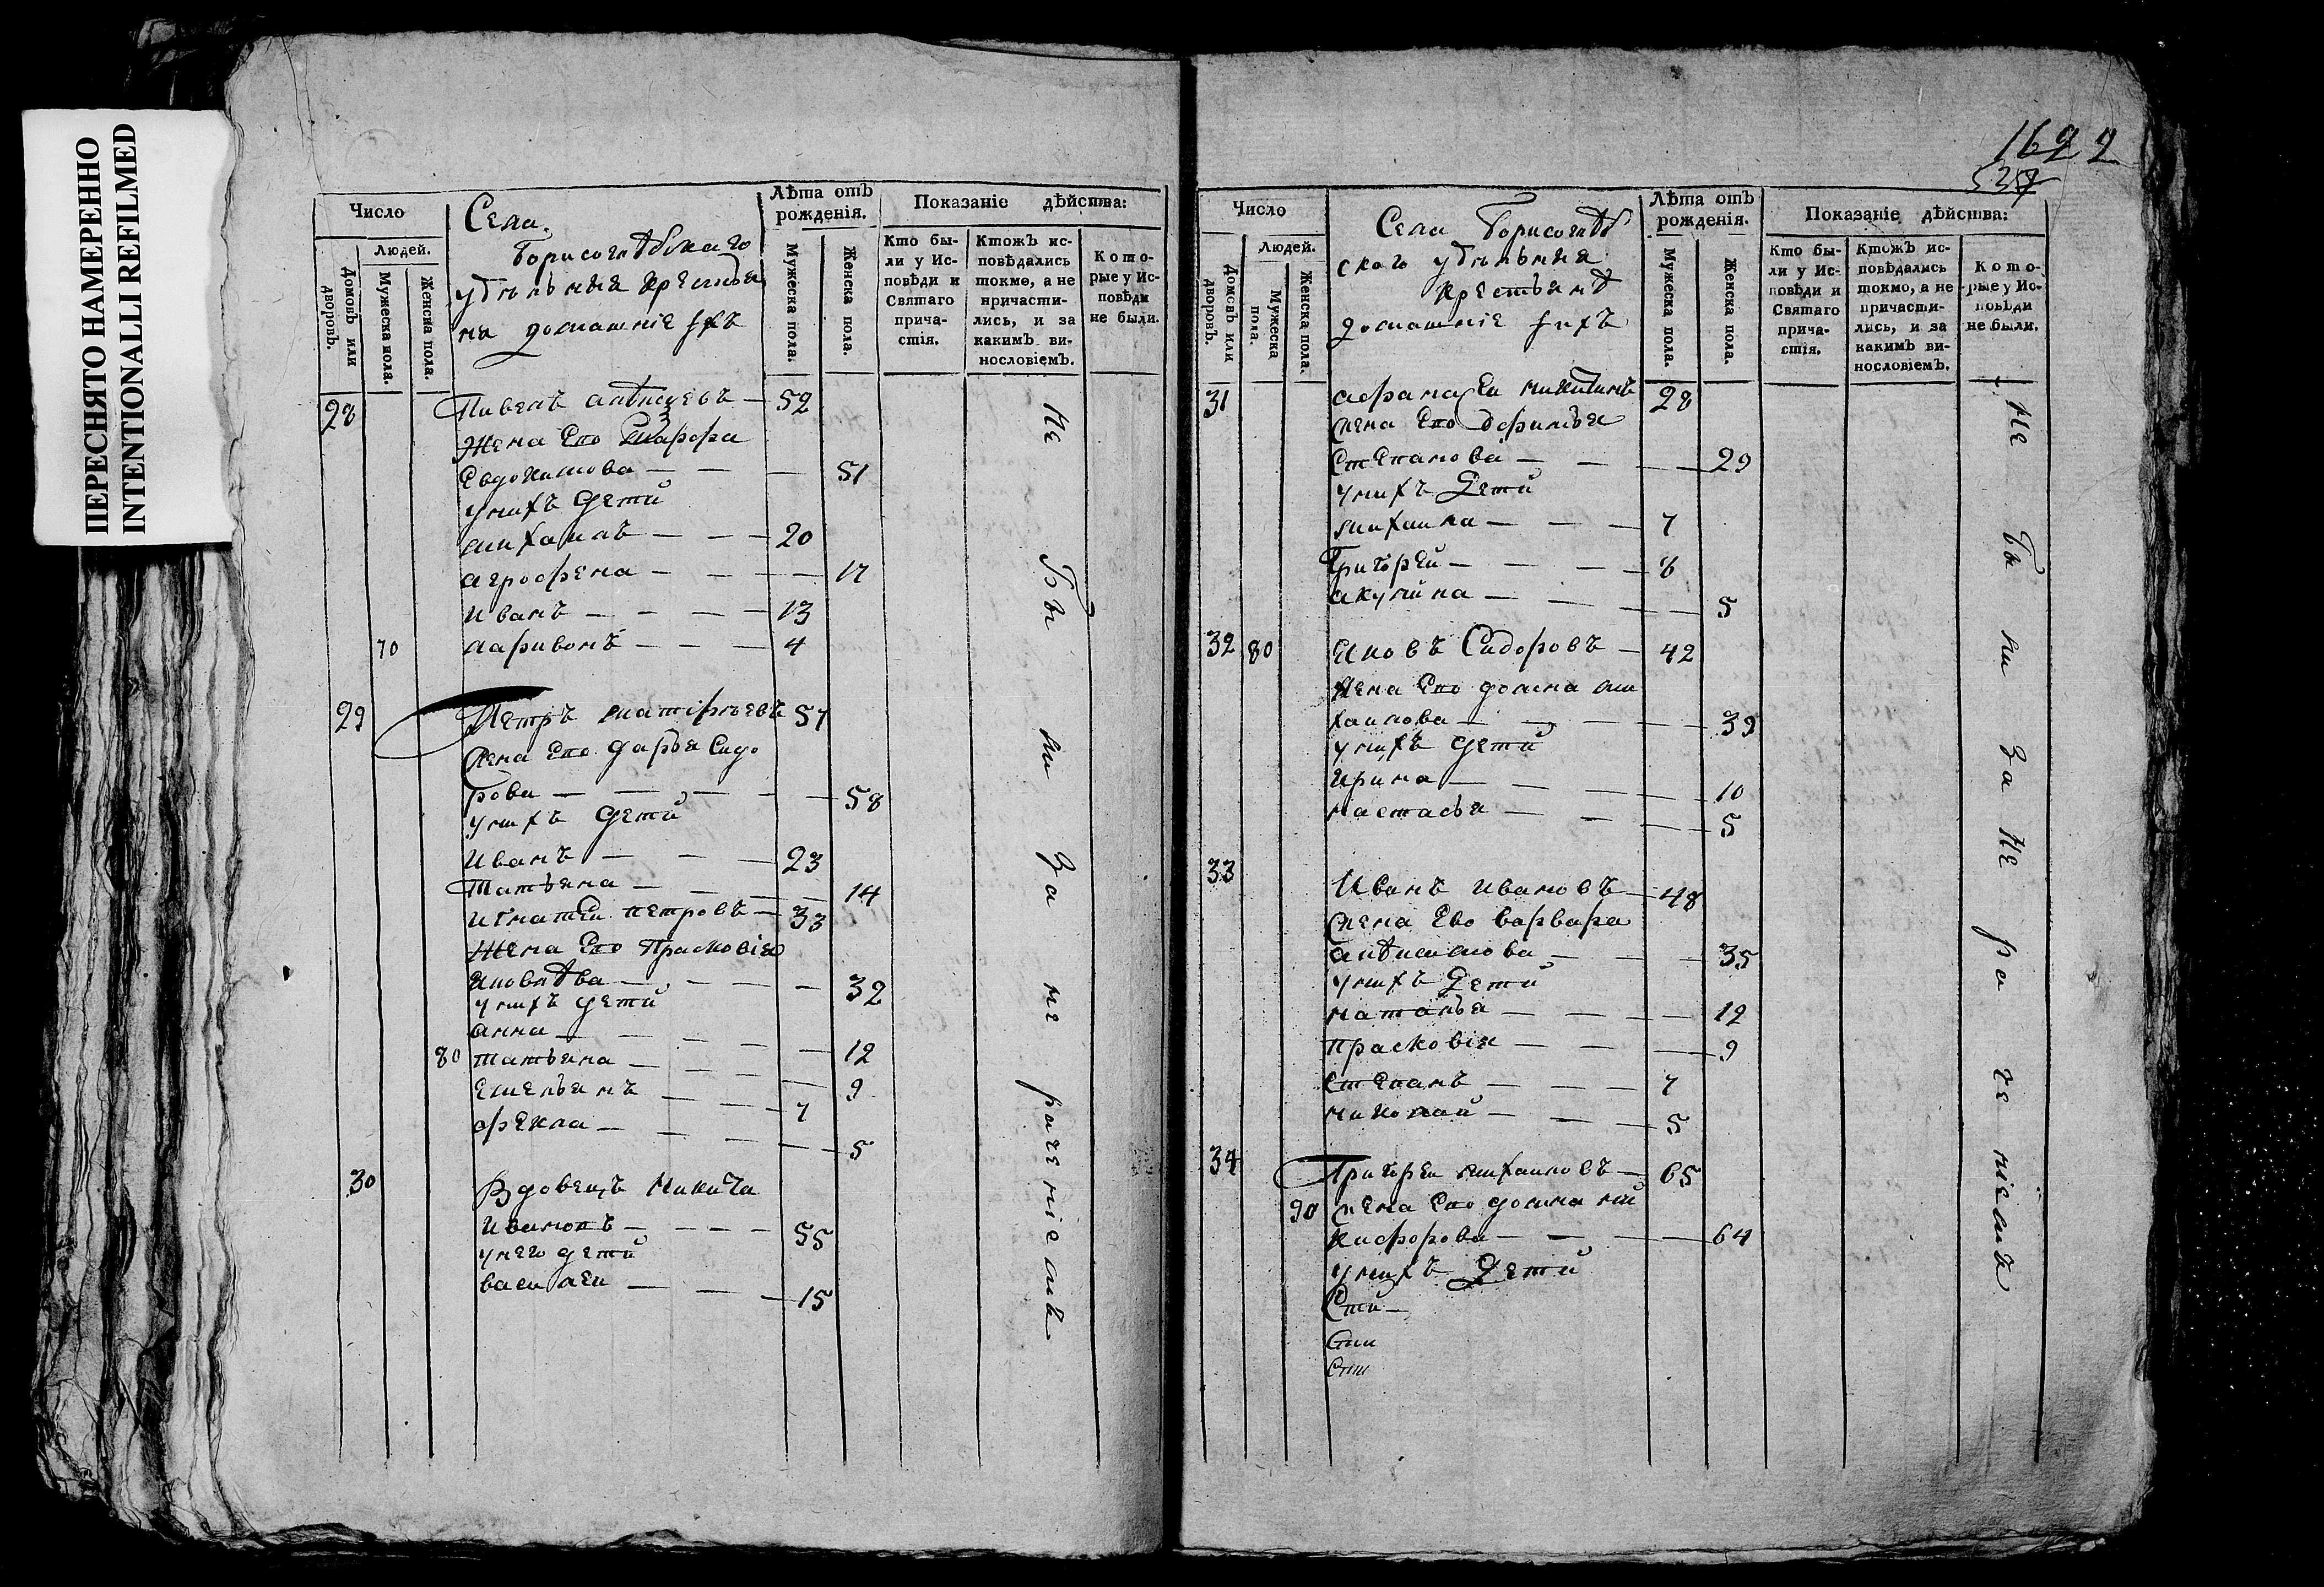 ПЕРЕСНЯТО НАМЕРЕННО
INTENTIONALLI REFILMED
Число
Людей.
Домовъ или дворовъ.
Мужеска пола.
Женска пола.
Села
Борисоглѣбскаго
удѣльныя крестья
на домашніе ихъ
Лѣта отъ рожденія.
Мужеска пола.
Женска пола.
Показаніе дѣйства:
Кто бы-
ли у Ис-
повѣди и
Святаго
прича-
стія.
Ктожъ ис-
повѣдались
токмо, а не
причасти-
лись, и за
какимъ ви-
нословіемъ.
Кото-
рые у Ис-
повѣди
не были.
28 52
жена Его
Евдокимова — — — 51
у нихъ дети
михаилъ — — — 20
агрофена — — — 17
Иванъ — — — 13
70 ларивонъ — — — 4
29 Петръ 57
жена Его дарья Сидо
рова — — — 58
у нихъ дети
Иванъ — — — 23
Татьяна — — — 14
игнатеи петровъ — 33
жена Его Прасковія
Яковлѣва — — — 32
у нихъ дети
анна — — — 12
80 татьяна — — — 9
Емельянъ — — — 7
фекла — — — 5
30 Вдовецъ Никита
Ивановъ — — — 55
у него дети
василеи — — — 15
Не бы ли за не рачениемъ
1622
537
Число
Людей.
Домовъ или дворовъ.
Мужеска пола.
Женска пола.
Села Борисоглѣб
скаго удѣльныя
крестьянѣ
домашніе ихъ
Лѣта отъ рожденія.
Мужеска пола.
Женска пола.
Показаніе дѣйства:
Кто бы-
ли у Ис-
повѣди и
Святаго
прича-
стія.
Ктожъ ис-
повѣдались
токмо, а не
причасти-
лись, и за
какимъ ви-
нословіемъ.
Кото-
рые у Ис-
повѣди
не были.
31 афанасеи никитинъ 28
жена Его
Степанова — — — 29
у нихъ Дети
михаила — — — 7
Григореи — — — 6
акулина — — — 5
32 80 Яковъ Сидоровъ — 42
жена Его домна ми
хаилова — — — 39
у нихъ дети
Ирина — — — 10
настасья — — — 5
33 Иванъ ивановъ — 48
жена Ево варвара
— — 35
у нихъ Дети
наталья — — — 12
прасковія — — — 9
степанъ — — — 7
николаи — — — 5
34 Григореи михаиловъ — 65
90 жена Его домна ни
кифорова — — — 64
у нихъ Дети
Сти—
Сти
Сти
Не бы ли за не ра че ниемъ